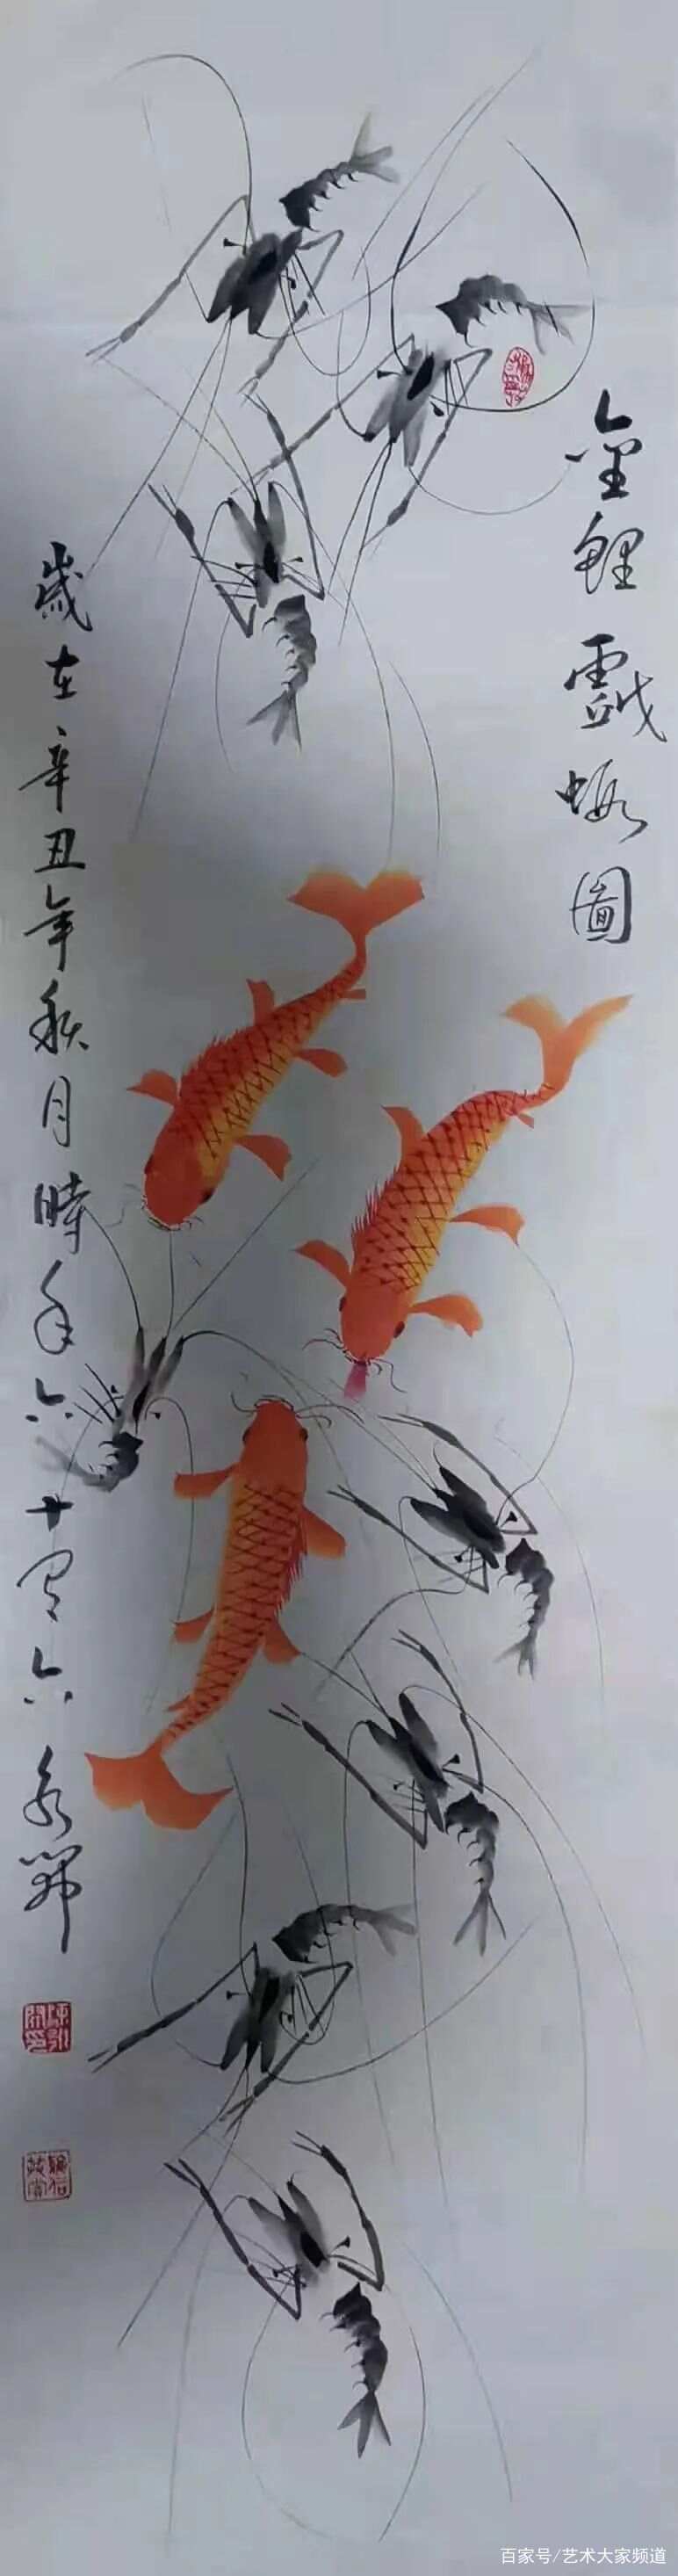 金鯉戲蝦圖
歲在辛丑年秋月時年六十有六 永
百家号/艺术大家频道